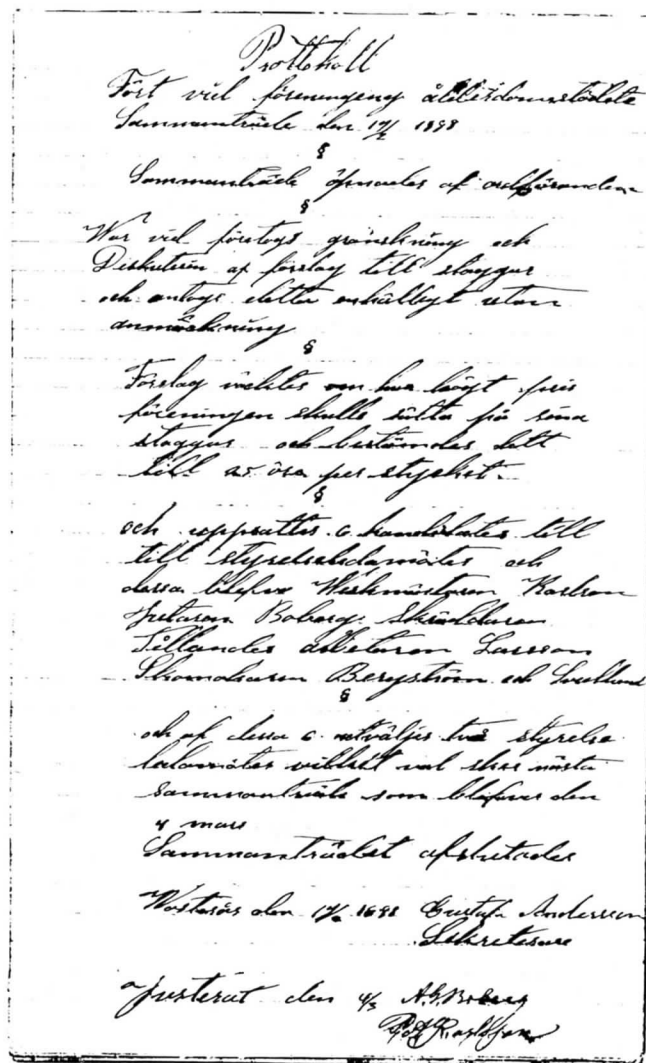 Prottokoll
Fört vid föreningens
Sammanträde den 17/2 1898
§
Sammanträde öpnades af ordföranden
§
War vid företogs granskning och
Diskution af förslag till staggar
och antogs detta enhälligt utan
anmärkning
§
Förslagväcktes om hur högt pris
föreningen skulle sätta på sina
staggar och bestämdes det
till 25 öre per stycket.
§
och uppsattes 6 kandidater till
till styrelseledamöter och
dessa blefvo Werkmästaren Karlson
Boberg Skräddaren
Tillander arbetaren Larsson
Skomakaren Bergström och
§
och af dessa 6 utväljes två styrelse
ledamöter vilket val sker nästa
sammanträde som blifver den
4 mars
Sammanträdet afslutades
Westerås den 17/2 1898 Gustaf Andersson
Sekreterare
Justerat den 4/3 A.G. Boberg